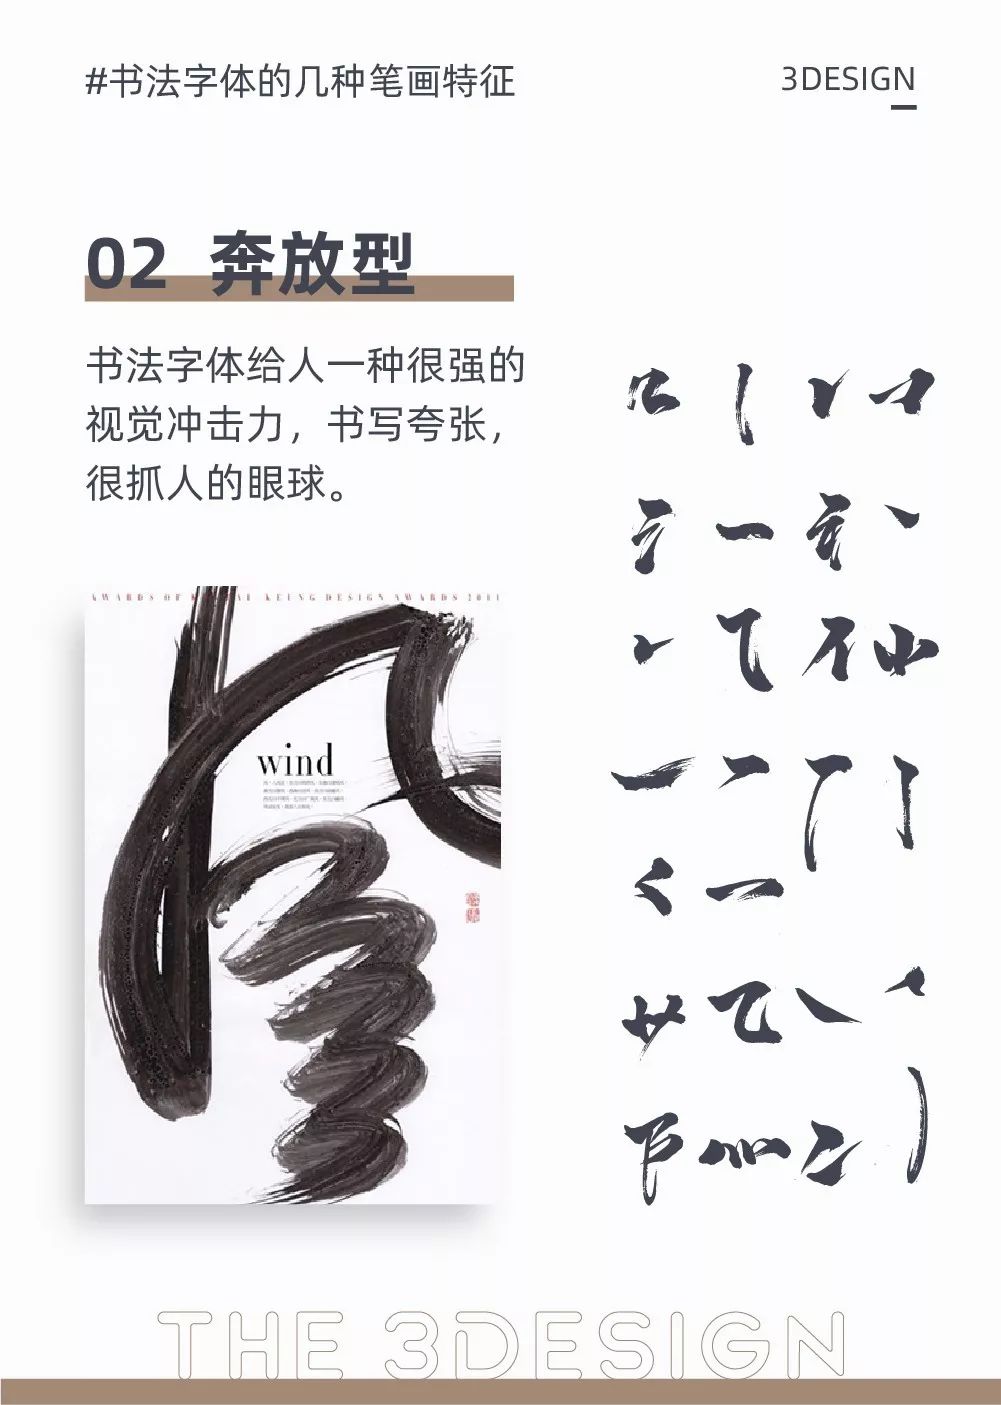 #书法字体的几种笔画特征
3DESIGN
02 奔放型
书法字体给人一种很强的
视觉冲击力，书写夸张，
很抓人的眼球。
wind
THE 3DESIGN